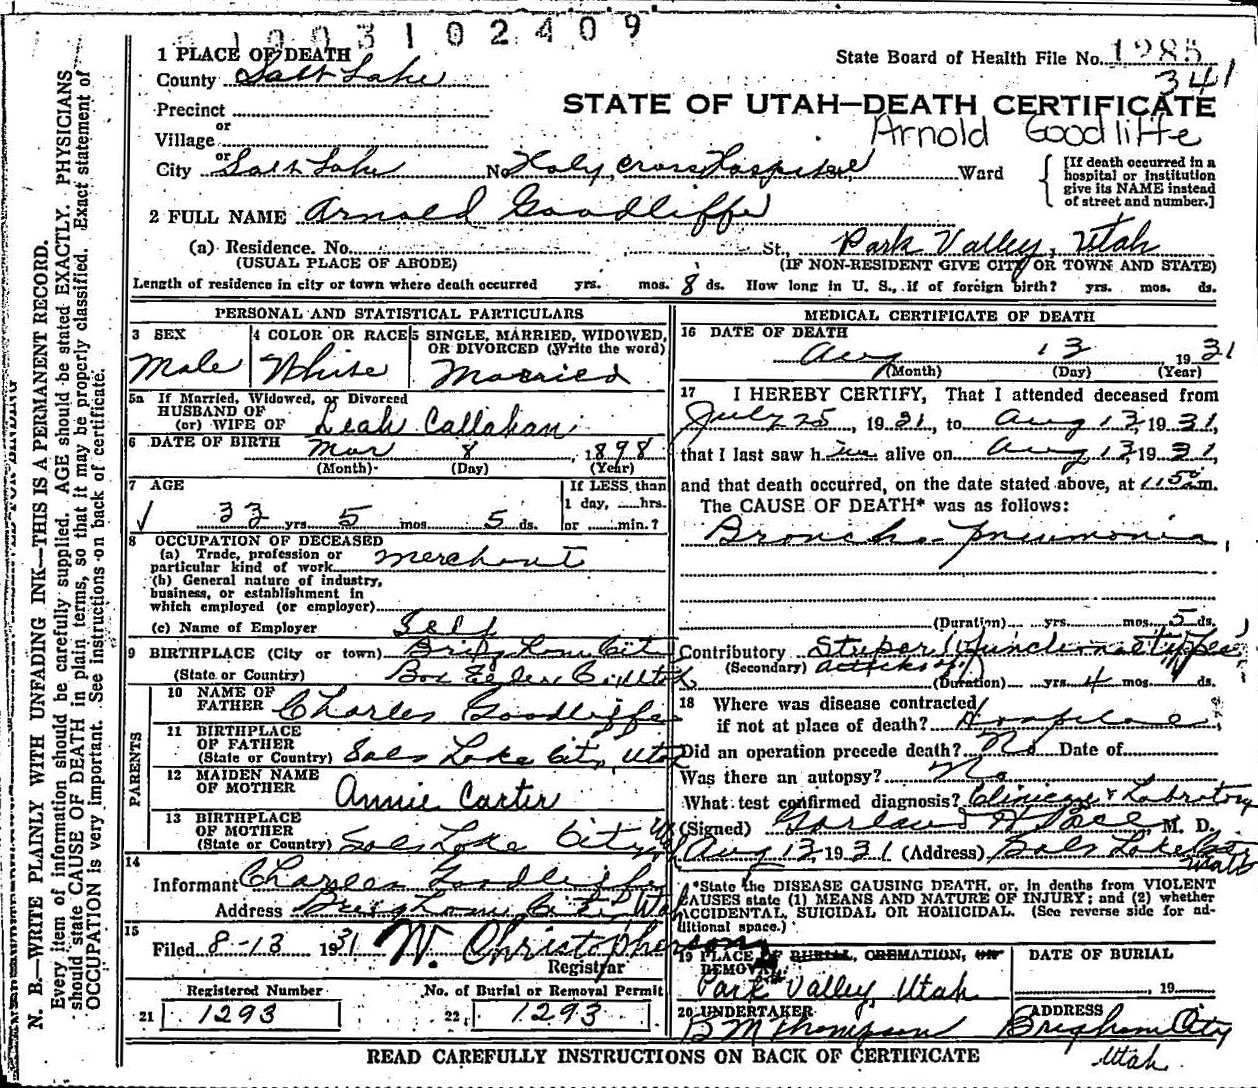 1003102409
1 PLACE OF DEATH
State Board of Health File No. 1285
341
County Salt Lake
STATE OF UTAH—DEATH CERTIFICATE
Precinct
or
Village
Arnold Goodliffe
or
City Salt Lake No. Holy Cross Hospital Ward
[If death occurred in a hospital or institution give its NAME instead of street and number.]
2 FULL NAME Arnold Goodliffe
(a) Residence. No. St., Park Valley, Utah
(USUAL PLACE OF ABODE) (IF NON-RESIDENT GIVE CITY OR TOWN AND STATE)
Length of residence in city or town where death occurred yrs. mos. 8 ds. How long in U. S., if of foreign birth? yrs. mos. ds.
PERSONAL AND STATISTICAL PARTICULARS
3 SEX
Male
4 COLOR OR RACE
White
5 SINGLE, MARRIED, WIDOWED,
OR DIVORCED (Write the word)
Married
5a If Married, Widowed, or Divorced
HUSBAND OF
(or) WIFE OF Leah Callahan
6 DATE OF BIRTH Mar 8, 1898
(Month) (Day) (Year)
7 AGE
33 yrs. 5 mos. 5 ds.
If LESS than
1 day, hrs.
or min.?
8 OCCUPATION OF DECEASED
(a) Trade, profession or
particular kind of work merchant
(b) General nature of industry,
business, or establishment in
which employed (or employer)
(c) Name of Employer Self
9 BIRTHPLACE (City or town) Brigham City
(State or Country) Box Elder Co. Utah
PARENTS
10 NAME OF
FATHER Charles Goodliffe
11 BIRTHPLACE
OF FATHER
(State or Country) Salt Lake City, Utah
12 MAIDEN NAME
OF MOTHER Annie Carter
13 BIRTHPLACE
OF MOTHER
(State or Country) Salt Lake City
14
Informant Charles Goodliffe
Address Brigham City, Utah
15
Filed 8-13 1931 W. Christopherson
Registrar
Registered Number
21 1293
No. of Burial or Removal Permit
22. 1293
MEDICAL CERTIFICATE OF DEATH
16 DATE OF DEATH
Aug 13 1931
(Month) (Day) (Year)
17 I HEREBY CERTIFY, That I attended deceased from
July 25, 1931, to Aug 13, 1931,
that I last saw him alive on Aug 13, 1931,
and that death occurred, on the date stated above, at m.
The CAUSE OF DEATH* was as follows:
Broncho-pneumonia,
(Duration) yrs. mos. 5 ds.
Contributory Stupor functional type
(Secondary)
(Duration) yrs. 4 mos. ds.
18 Where was disease contracted
if not at place of death?
Did an operation precede death? No Date of
Was there an autopsy? No
What test confirmed diagnosis? Clinical & Labratory
(Signed) Garland H Pace, M. D.
Aug 13, 1931 (Address) Salt Lake City
Utah
*State the DISEASE CAUSING DEATH, or, in deaths from VIOLENT
CAUSES state (1) MEANS AND NATURE OF INJURY; and (2) whether
ACCIDENTAL, SUICIDAL OR HOMICIDAL. (See reverse side for ad-
ditional space.)
19 PLACE OF BURIAL, CREMATION, OR
REMOVAL
Park Valley, Utah
DATE OF BURIAL
19
20 UNDERTAKER
B M Thompson
ADDRESS
Brigham City
Utah.
READ CAREFULLY INSTRUCTIONS ON BACK OF CERTIFICATE
N. B.—WRITE PLAINLY WITH UNFADING INK—THIS IS A PERMANENT RECORD.
Every item of information should be carefully supplied. AGE should be stated EXACTLY. PHYSICIANS
should state CAUSE OF DEATH in plain terms, so that it may be properly classified. Exact statement of
OCCUPATION is very important. See instructions on back of certificate.